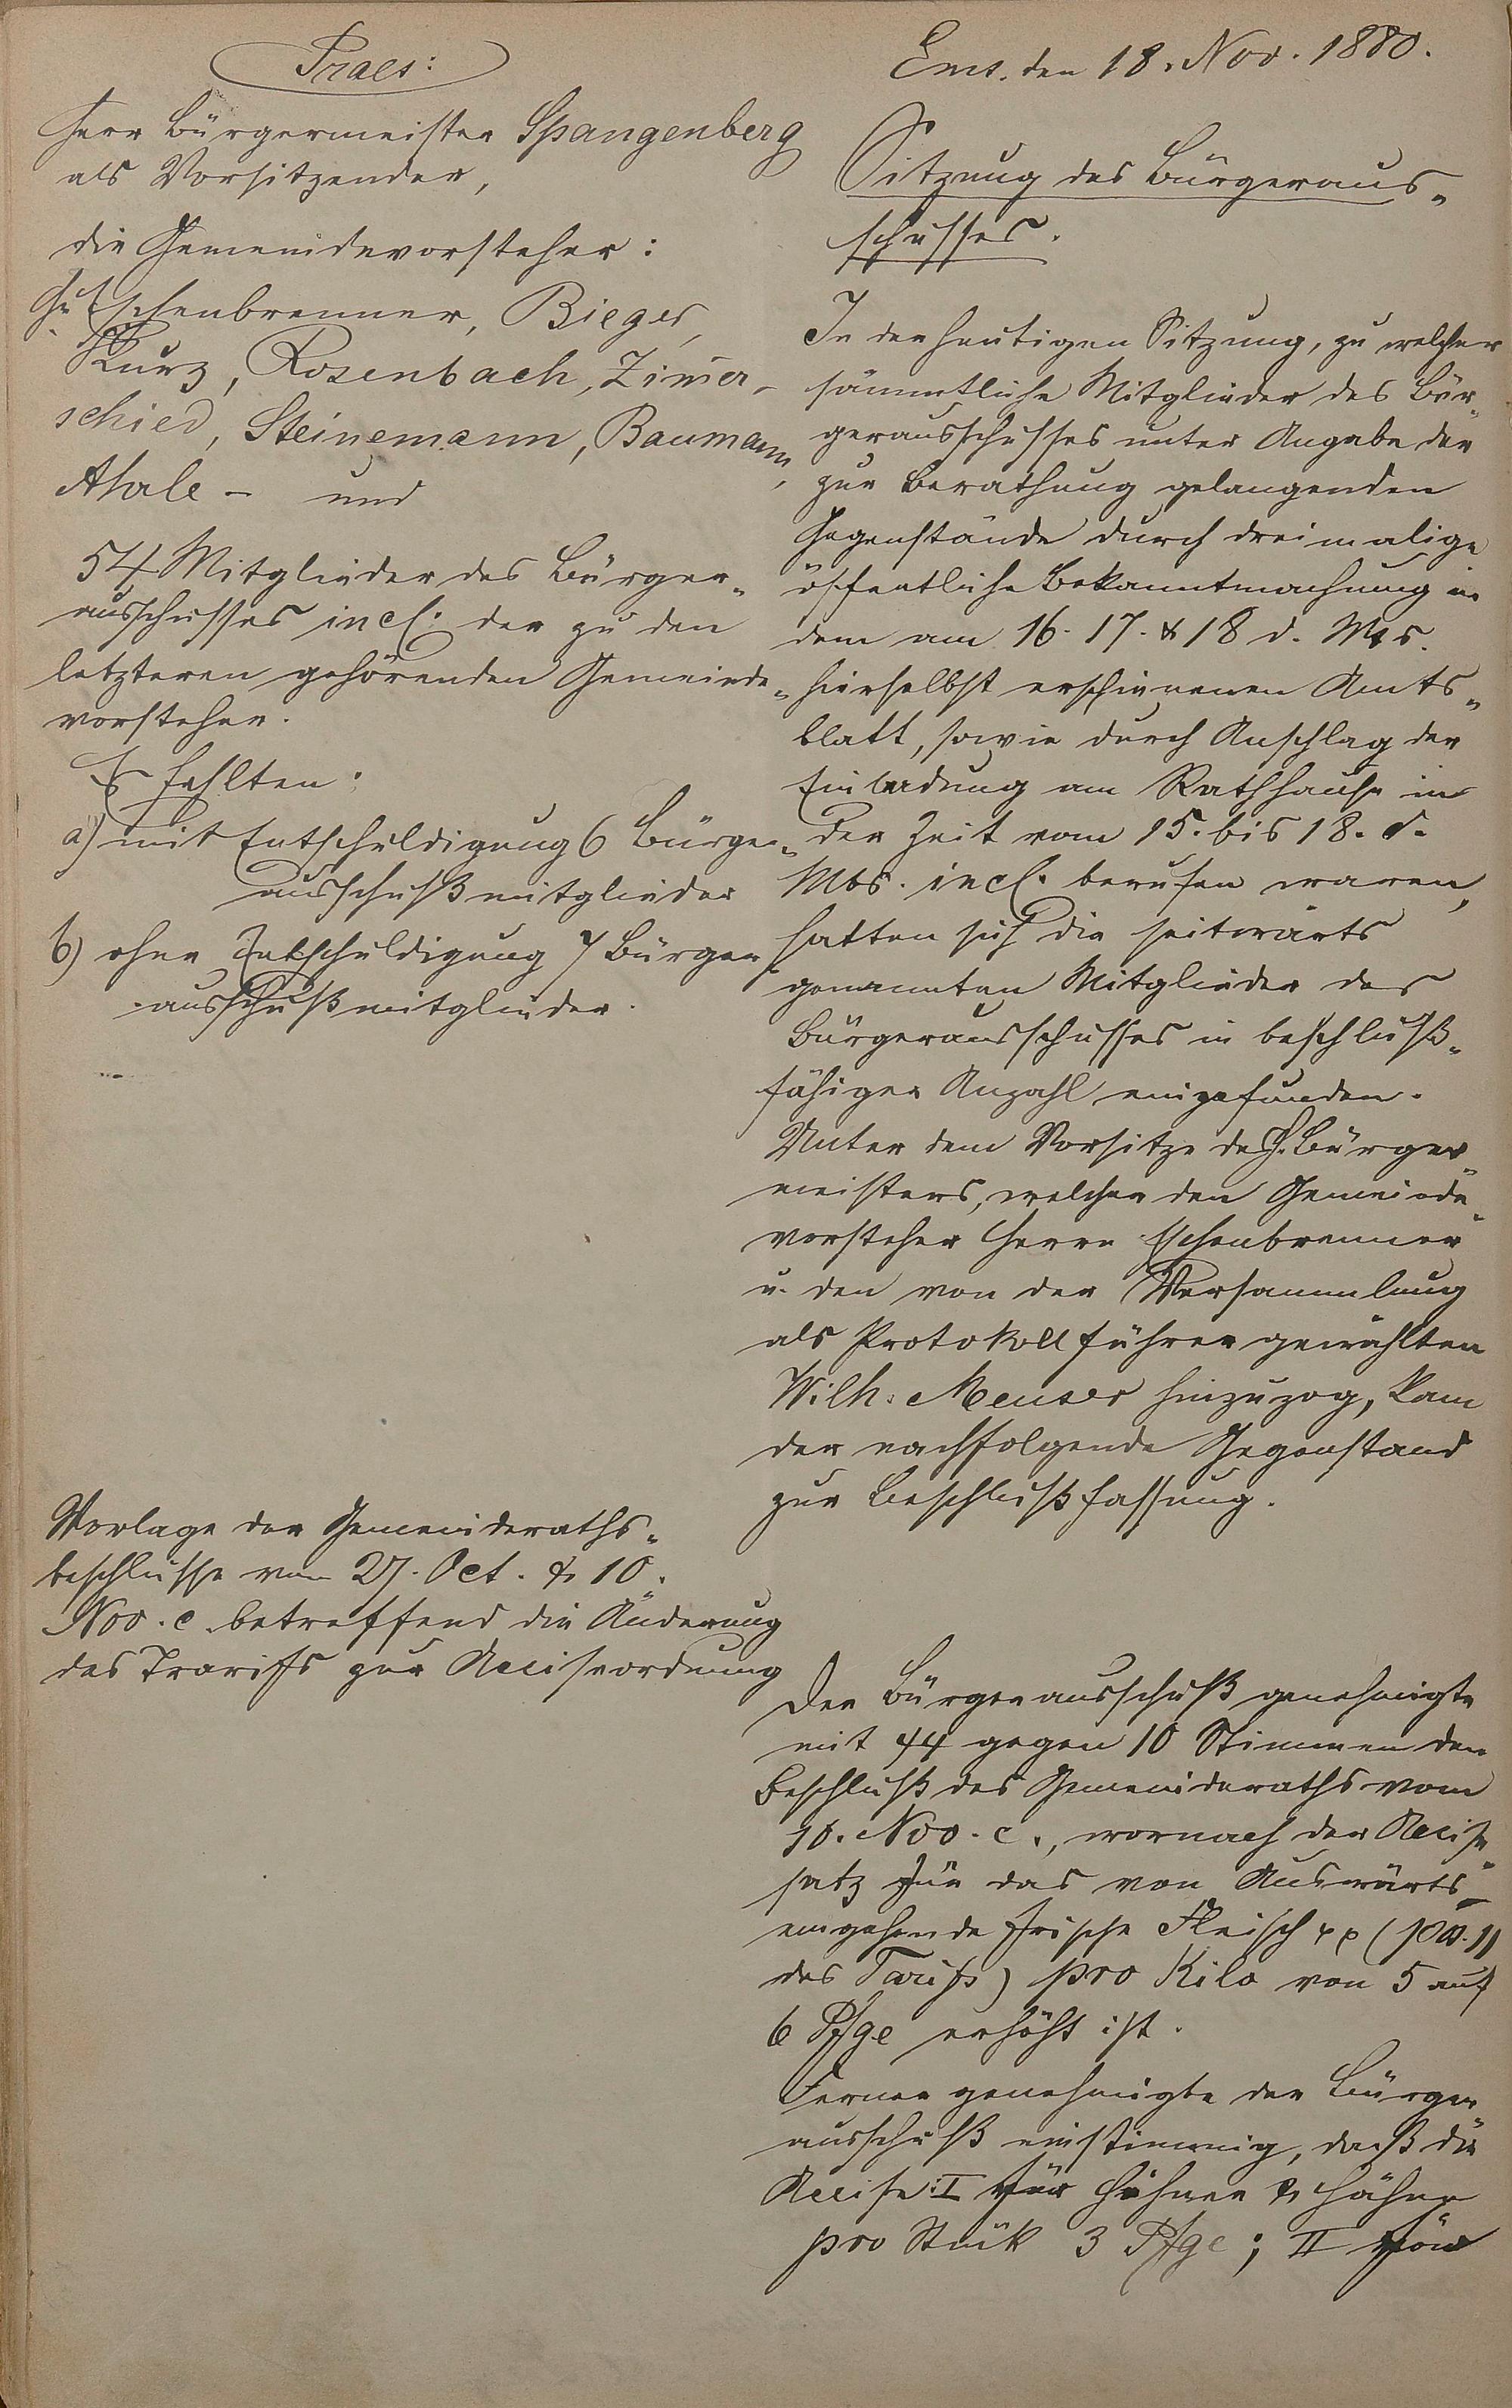 Praes:
Herr Bürgermeister Spangenberg
als Vorsitzender,
die Gemeindevorsteher:
Eschenbrenner, Bieger,
Kurz, Rosenbach, Zimer-
schied, Steinemann, Baumann,
und
54 Mitglieder des Bürger-
ausschusses incl. der zu den
letzteren gehörenden Gemeinde-
vorsteher.
Es fehlten:
a) mit Entschuldigung 6 Bürger-
ausschußmitglieder
b) ohne Entschuldigung 7 Bürger
ausschußmitglieder.
Vorlage der Gemeinderaths-
beschlüsse vom 27. Oct. & 10.
Nov. c. betreffend die Änderung
des Trarifs zur Acciseordnung
Ems. den 18. Nov. 1880.
Sitzung des Bürgeraus-
schusses.
In der heutigen Sitzung, zu welcher
sämmtliche Mitglieder des Bür-
gerausschusses unter Angabe der
zur Berathung gelangenden
Gegenstände durch dreimalige
öffentliche Bekanntmachung in
dem am 16. 17. & 18 d. Mts.
hierselbst erschienenen Amts-
blatt, sowie durch Anschlag der
Einladung am Rathhause in
der Zeit vom 15. bis 18. d.
Mts. incl. berufen waren,
hatten sich die seitwärts
genannten Mitglieder des
Bürgerausschusses in beschluß-
fähiger Anzahl eingefunden.
Unter dem Vorsitze des H. Bürger-
meisters, welcher den Gemeinde-
vorsteher Herrn Eschenbrenner
u. den von der Versammlung
als Protokollführer gewählten
Wilh. Meuser hinzuzog, kam
der nachfolgende Gegenstand
zur Beschlußfassung.
Der Bürgerausschuß genehmigte
mit 44 gegen 10 Stimmen den
Beschluß des Gemeinderaths vom
10. Nov. c., wornach der Accise-
satz für das von Auswärts
eingehende frische Fleisch pp (pos. 11
des Tarifs) pro Kilo von 5 auf
6 Pfge erhöht ist.
Ferner genehmigte der Bürger
ausschuß einstimmig, daß die
Accise: I für Hühner & Hähne
pro Stück 3 Pfge; II für